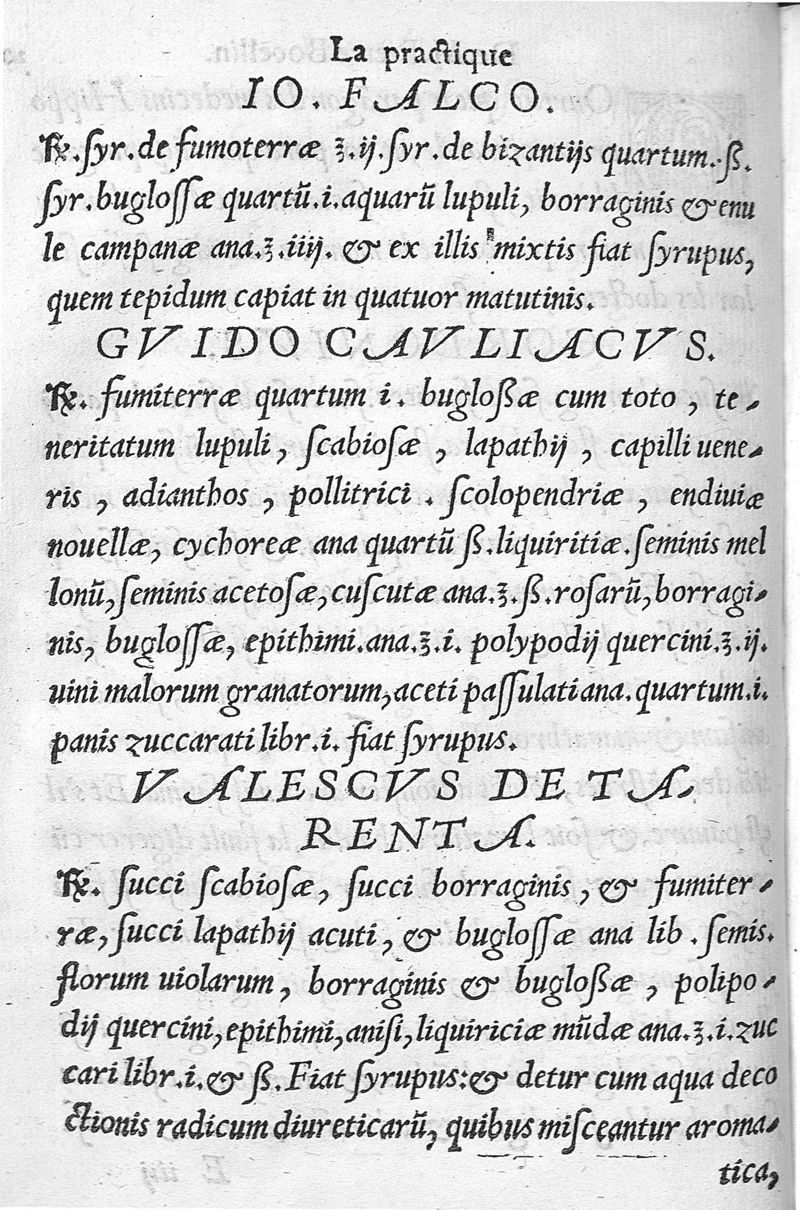 La practique
IO. FALCO.
℞. ſyr. de fumoterræ ʒ. ij. ſyr. de bizantijs quartum. ß.
ſyr. bugloſſæ quartū. i. aquarū lupuli, borraginis & enu
le campanæ ana. ʒ. iiij. & ex illis mixtis fiat ſyrupus,
quem tepidum capiat in quatuor matutinis.
GVIDO CAVLIACVS.
℞. fumiterræ quartum i. bugloßæ cum toto, te-
neritatum lupuli, ſcabioſæ, lapathij, capilli uene-
ris, adianthos, pollitrici. ſcolopendriæ, endiuiæ
nouellæ, cychoreæ ana quartū ß. liquiritiæ. ſeminis mel
lonū, ſeminis acetoſæ, cuſcutæ ana. ʒ. ß. roſarū, borragi-
nis, bugloſſæ, epithimi. ana. ʒ. i. polypodij quercini. ʒ. ij.
uini malorum granatorum, aceti paſſulati ana. quartum. i.
panis zuccarati libr. i. fiat ſyrupus.
VALESCVS DE TA-
RENTA.
℞. ſucci ſcabioſæ, ſucci borraginis, & fumiter-
ræ, ſucci lapathij acuti, & bugloſſæ ana lib. ſemis.
florum uiolarum, borraginis & bugloßæ, polipo-
dij quercini, epithimi, aniſi, liquiriciæ mūdæ ana. ʒ. i. zuc
cari libr. i. & ß. Fiat ſyrupus: & detur cum aqua deco
ctionis radicum diureticarū, quibus miſceantur aroma-
tica,